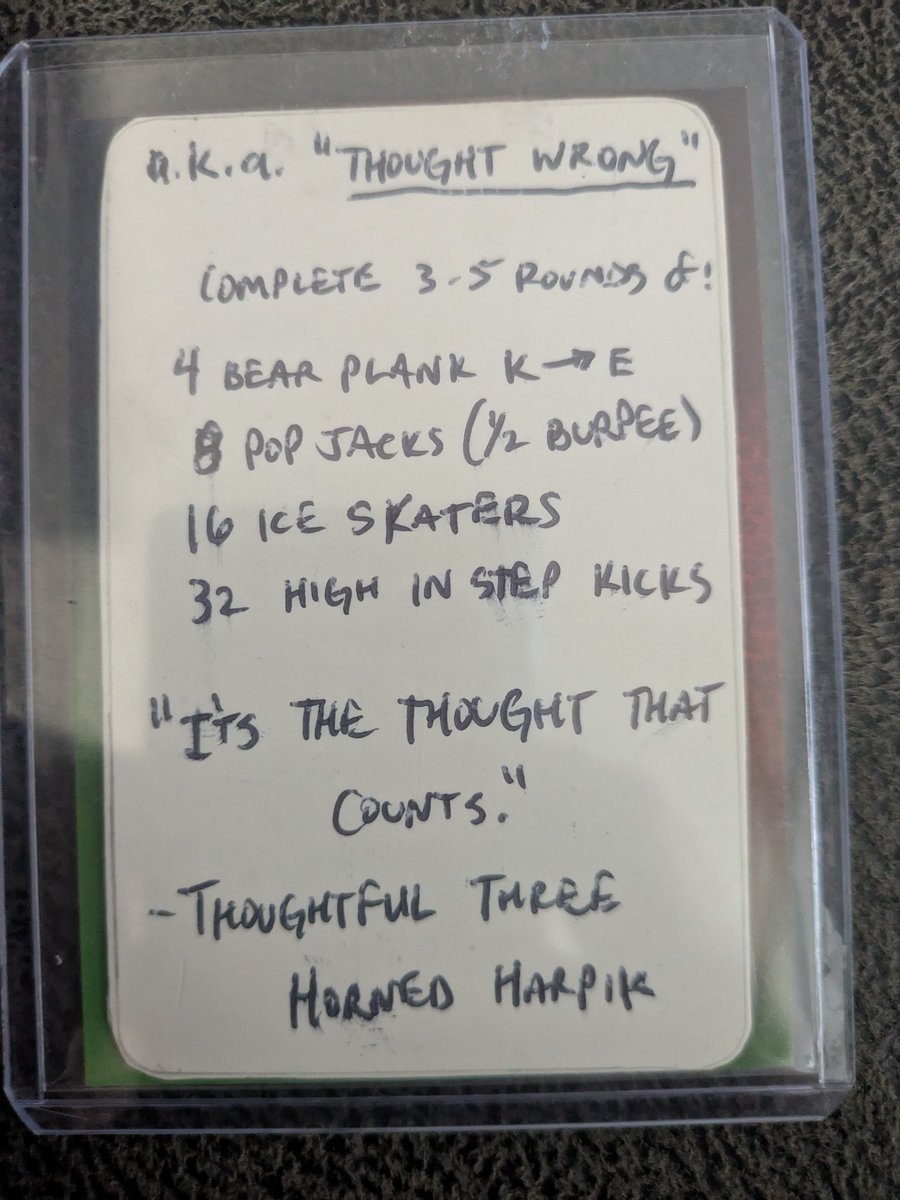 a.k.a. "THOUGHT WRONG"
COMPLETE 3-5 ROUNDS of:
4 BEAR PLANK K → E
8 POP JACKS (1/2 BURPEE)
16 ICE SKATERS
32 HIGH IN STEP KICKS
"IT'S THE THOUGHT THAT
COUNTS."
- THOUGHTFUL THREE
HORNED HARPIK